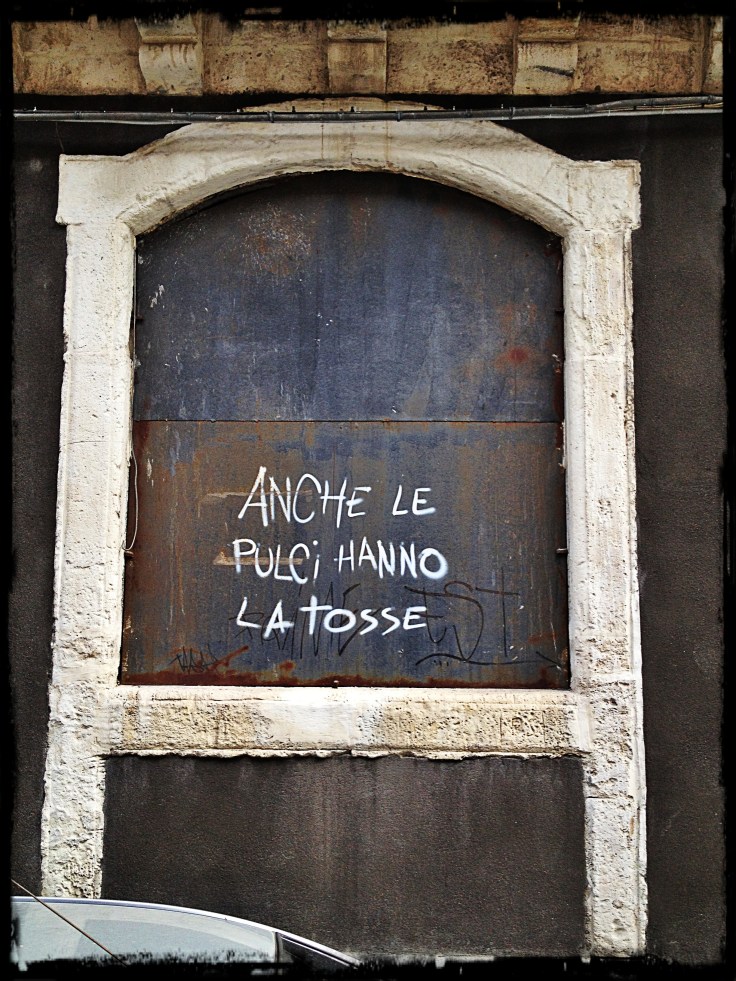 ANCHE LE
PULCI HANNO
LA TOSSE